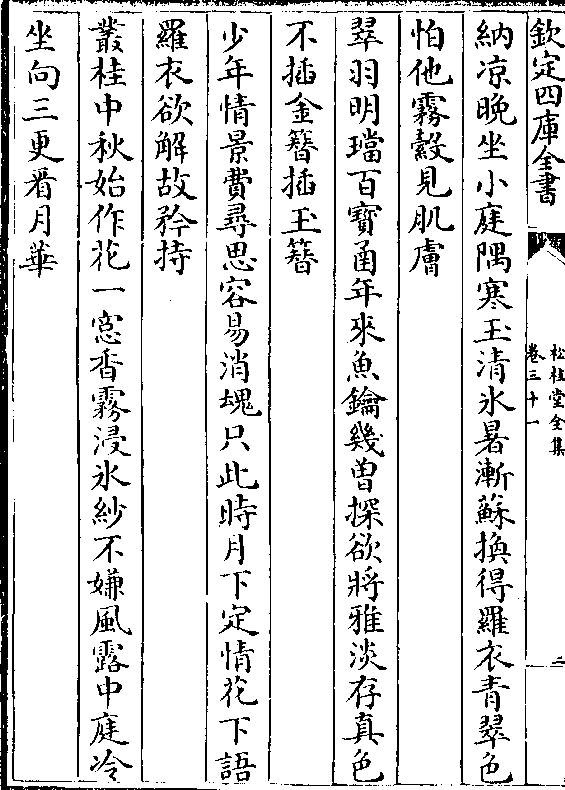 欽定四庫全書
松桂堂全集
卷三十一
二
納涼晚坐小庭隅寒玉清氷暑漸蘇換得羅衣青翠色
怕他霧縠見肌膚
翠羽明璫百寳函年來魚鑰幾曽探欲將雅淡存真色
不插金簪插玉簪
少年情景費尋思容易消魂只此時月下定情花下語
羅衣欲解故矜持
叢桂中秋始作花一窓香霧浸氷紗不嫌風露中庭冷
坐向三更看月華